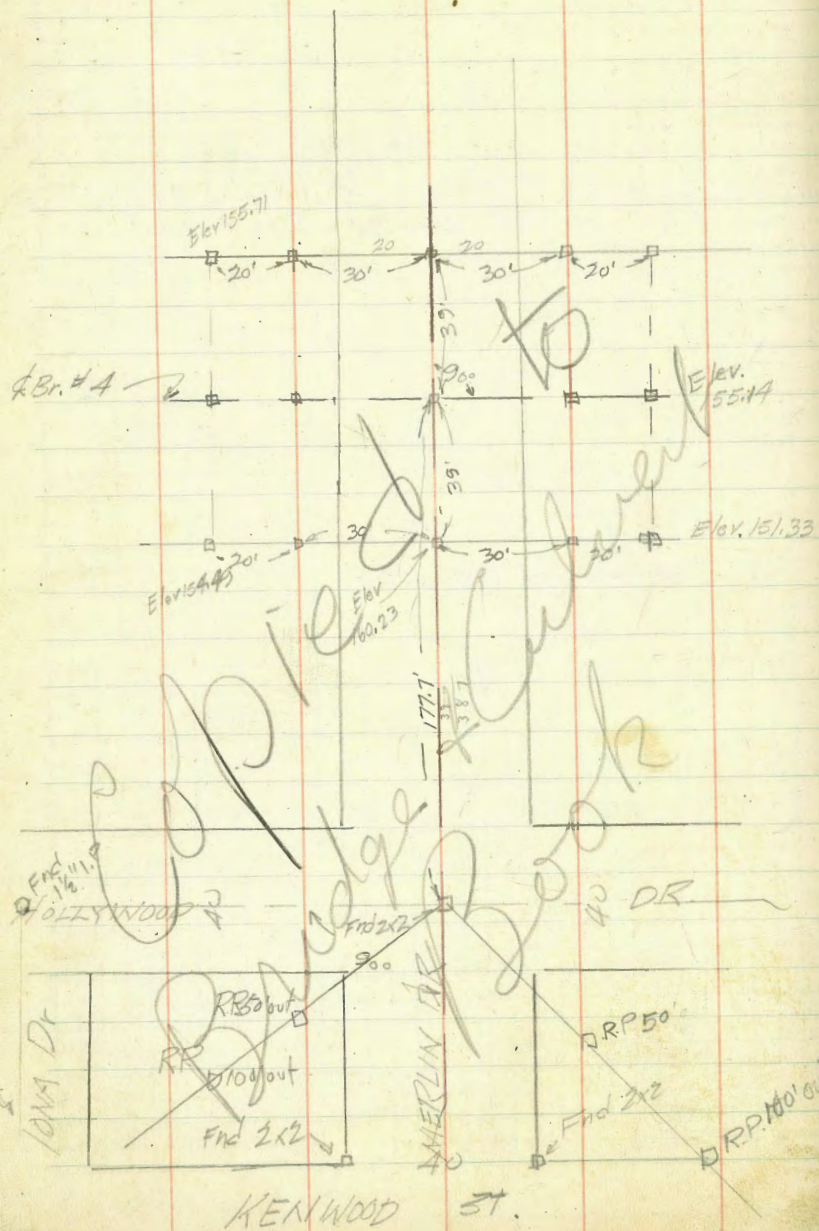 Elev 155.71
20 20
20' 30' 30' 20'
39'
℄ Br. #4
90°
Elev.
55.14
39'
30 30' 20'
20'
Elev. 151.33
Elev 154.49
Elev
160.23
177.7'
39
38 7
Copied to
Bridge & Culvert
Book
Fnd
1½" I.P.
HOLLYWOOD 40 40 DR
Fnd 2x2
90°
RP 50' out
R.P 50'
RP 100' out
IONA Dr
MERLIN DR
40
Fnd 2x2
Fnd 2x2
R.P. 100' ou
KENWOOD ST.